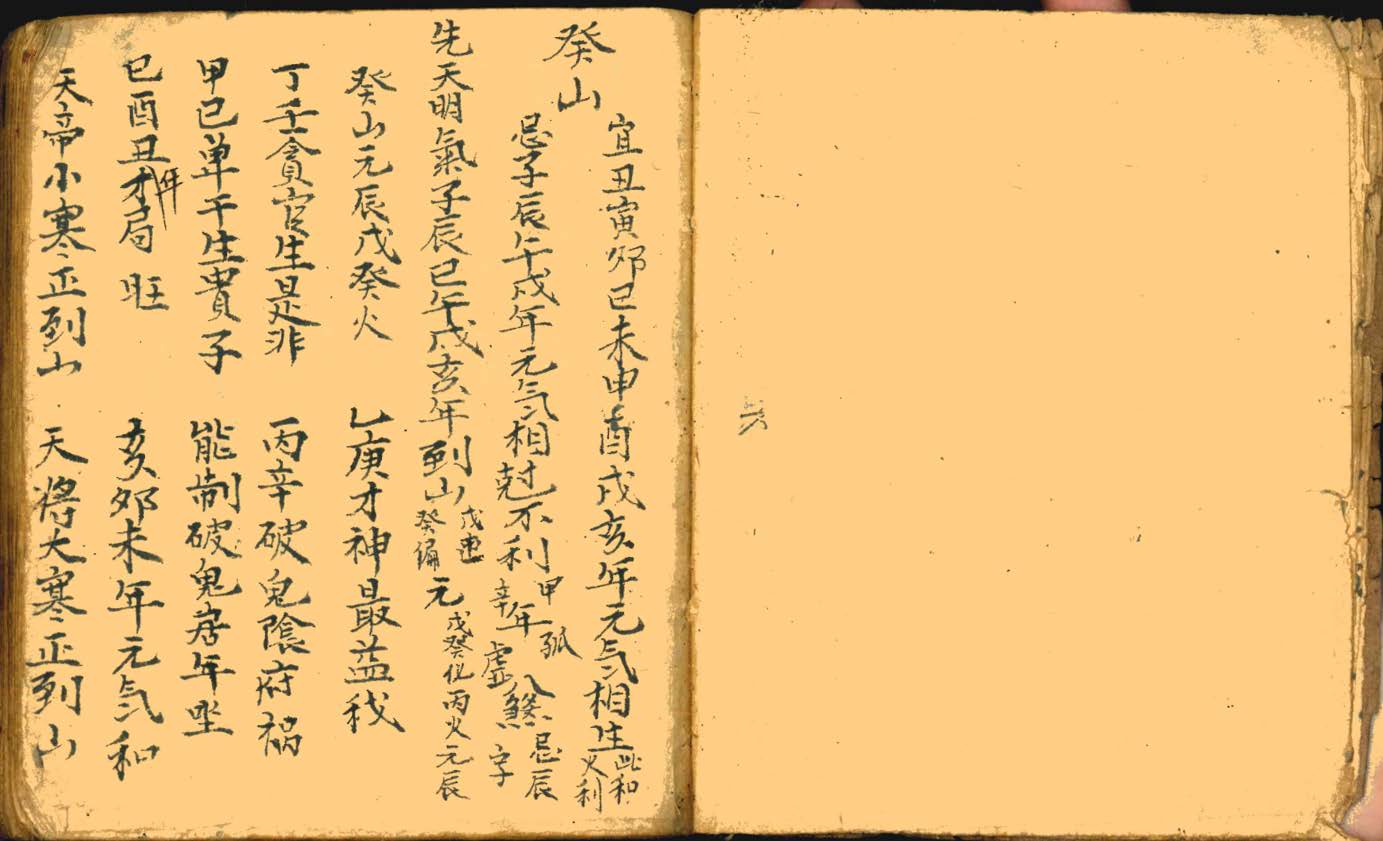 癸山
宜丑寅夘巳未申酉戌亥年元気相生比和大利
忌子辰午戌年元気相尅不利甲辛年孤虛八煞忌辰字
先天明氣子辰巳午戌亥年到山戊癸偏元戊癸化丙火元辰
癸山元辰戊癸火 乙庚才神最益我
丁壬貪官生是非 丙辛破鬼陰府禍
甲己単干生貴子 能制破鬼居年坐
巳酉丑年局旺 亥夘未年元気和
天帝小寒正到山 天将大寒正到山